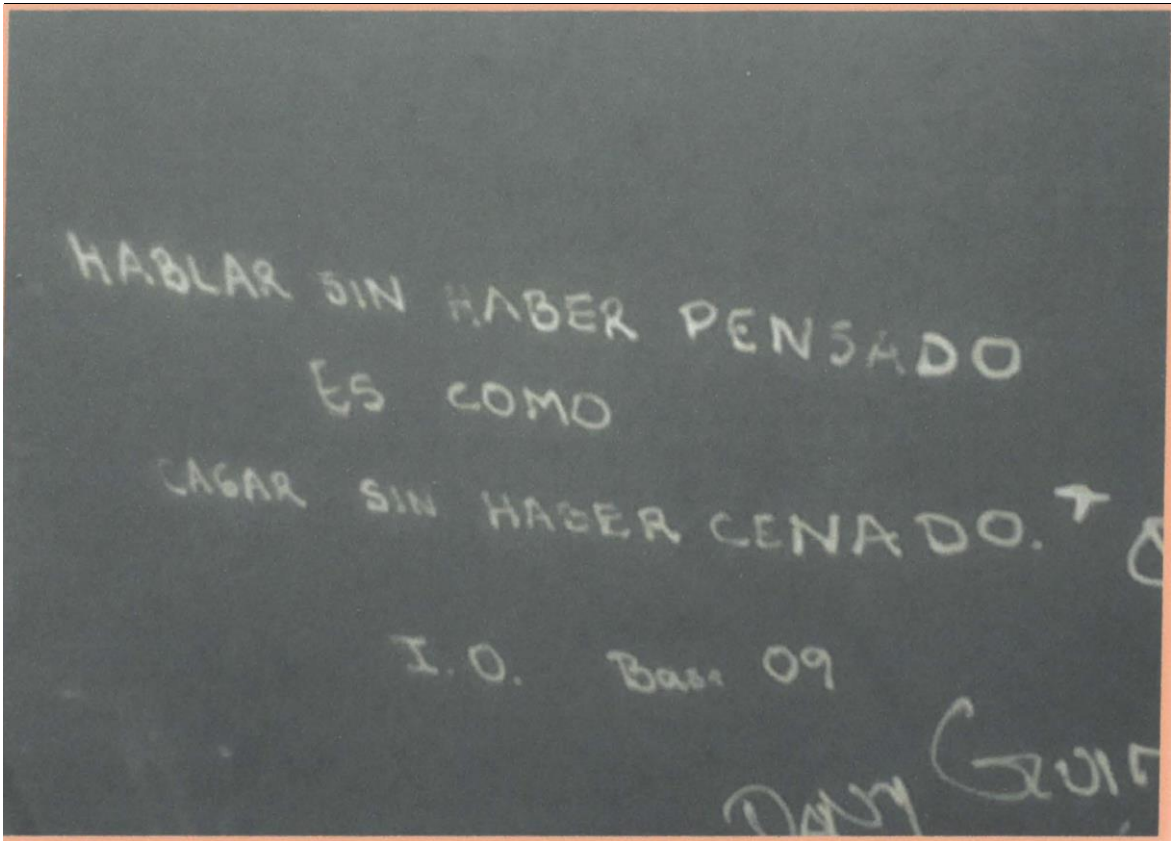 HABLAR SIN HABER PENSADO
ES COMO
CAGAR SIN HABER CENADO.
I.O. 09
DANY